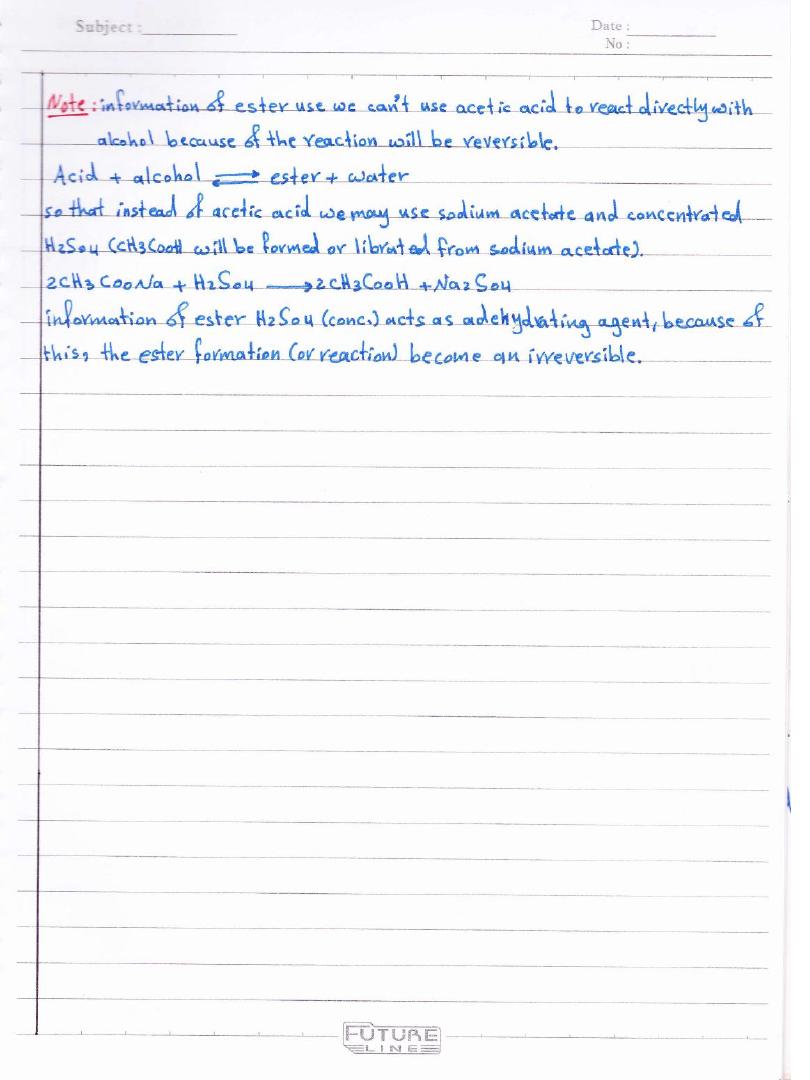 Subject :
Date :
No :
Note : information of ester use we can't use acetic acid to react directly with
alcohol because of the reaction will be reversible.
Acid + alcohol ⇌ ester + water
so that instead of acetic acid we may use sodium acetate and concentrated
H2So4 (CH3CooH will be formed or librated from sodium acetate).
2CH3CooNa + H2So4 → 2CH3CooH + Na2So4
information of ester H2So4 (conc.) acts as adehydrating agent, because of
this, the ester formation (or reaction) become an irreversible.
FUTURE
LINE